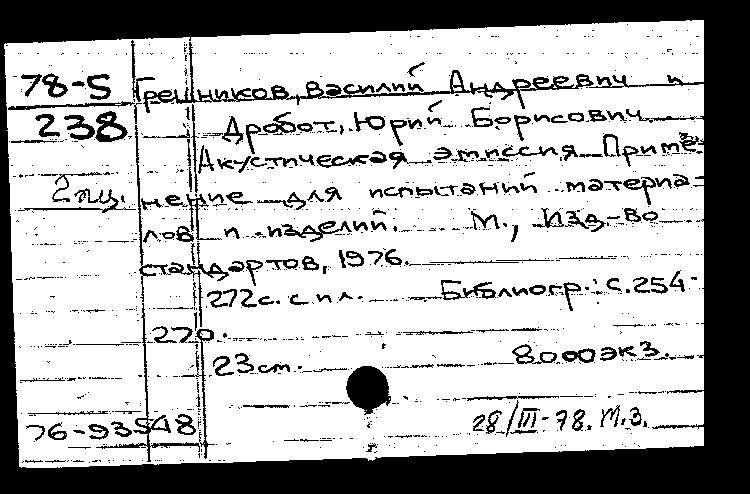 78-5 Грешников, Василий Андреевич и
238 Дробот, Юрий Борисович
Акустическая эмиссия. Приме-
2 экз. нение для испытаний материа-
лов и изделий. М., Изд-во
стандартов, 1976.
272 с. с ил. Библиогр.: с. 254-
270.
23 см. 8000 экз.
76-93548 28/III-78. М.З.